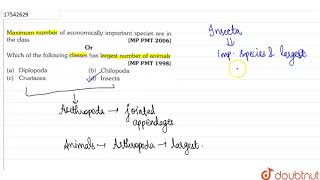 17542629
Maximum number of economically important species are in the class [MP PMT 2006]
Or
Which of the following classes has largest number of animals
[MP PMT 1998]
(a) Diplopoda (b) Chilopoda
(c) Crustacea (d) Insecta
Arthropoda → jointed
appendages
Animals → Arthropoda → largest.
Insecta
Imp. Species & largest
doubtnut